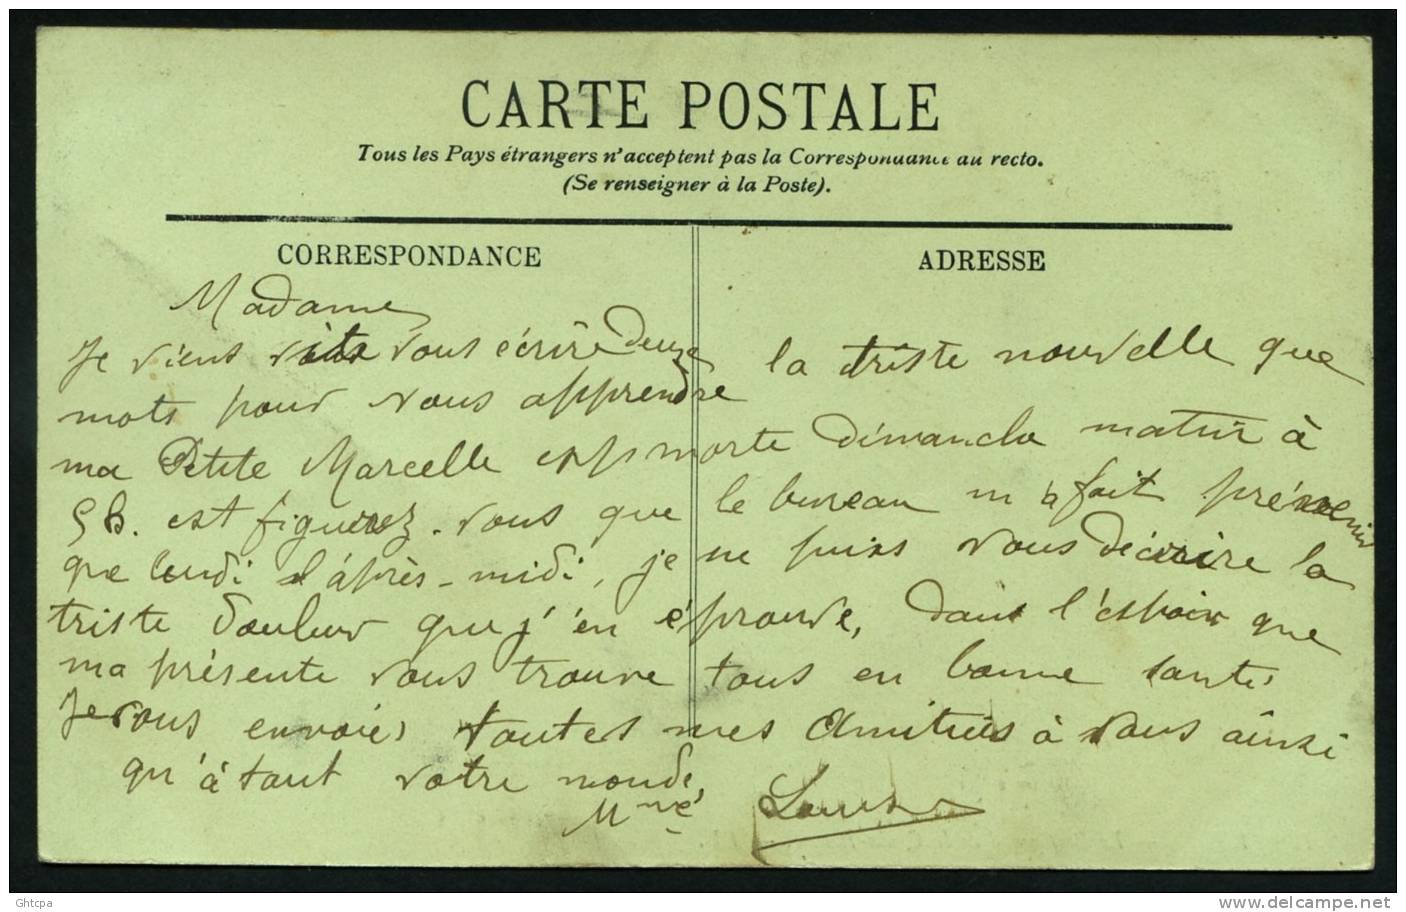 CARTE POSTALE
Tous les Pays étrangers n'acceptent pas la Correspondance au recto.
(Se renseigner à la Poste).
CORRESPONDANCE
ADRESSE
Madame
Je viens vous écrire deux la triste nouvelle que
mots pour vous apprendre
ma Petite Marcelle morte dimanche matin à
5 h. est figurez-vous que le bureau m'a fait prévenir
que lundi l'après-midi, je ne puis vous décrire la
triste douleur que j'en éprouve, dans l'espoir que
ma présente vous trouve tous en bonne santé
Je vous envoie toutes mes amitiés à vous ainsi
qu'à tout votre monde,
Mme Louise
Ghtcpa
www.delcampe.net